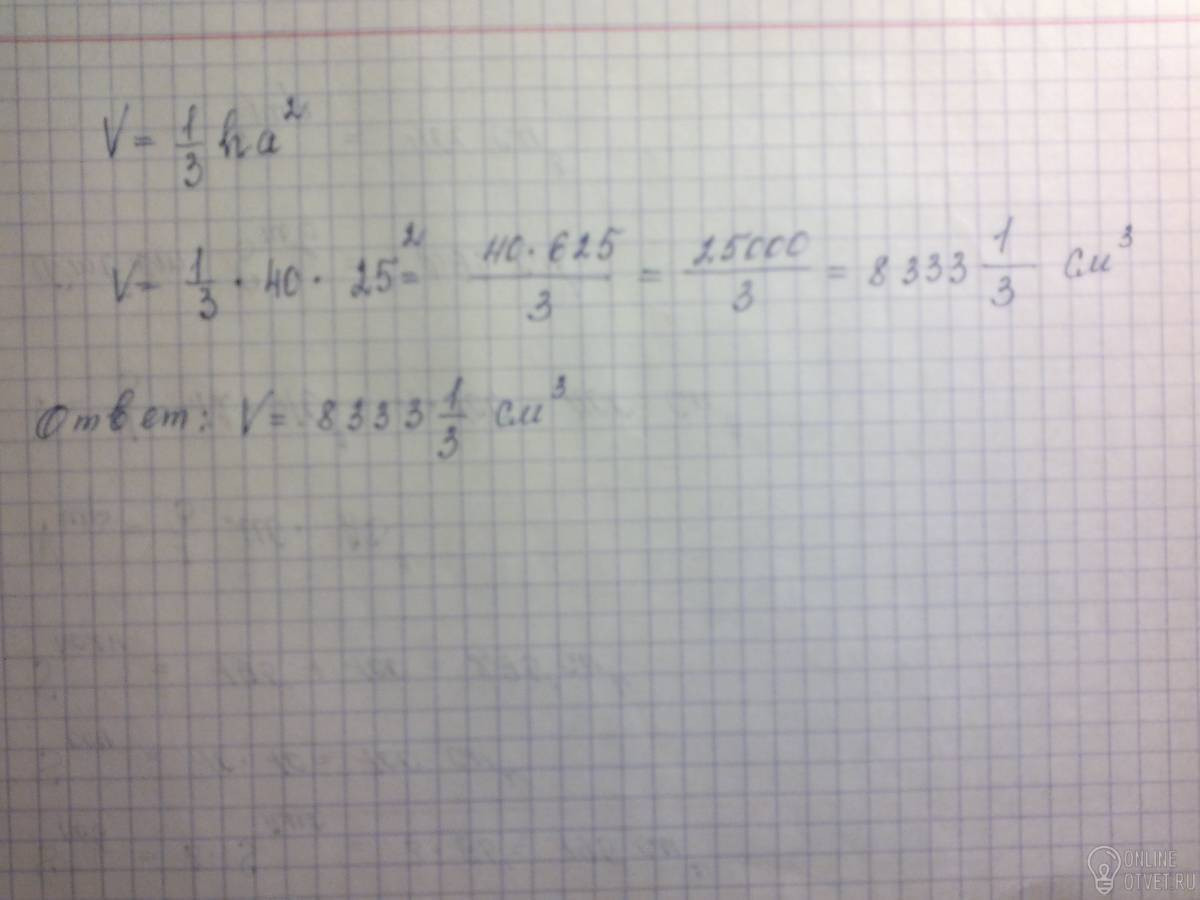 V = 1/3 h a²
V = 1/3 · 40 · 25² = 40·625/3 = 25000/3 = 8333 1/3 см³
Ответ: V = 8333 1/3 см³
ONLINE
OTVET.RU